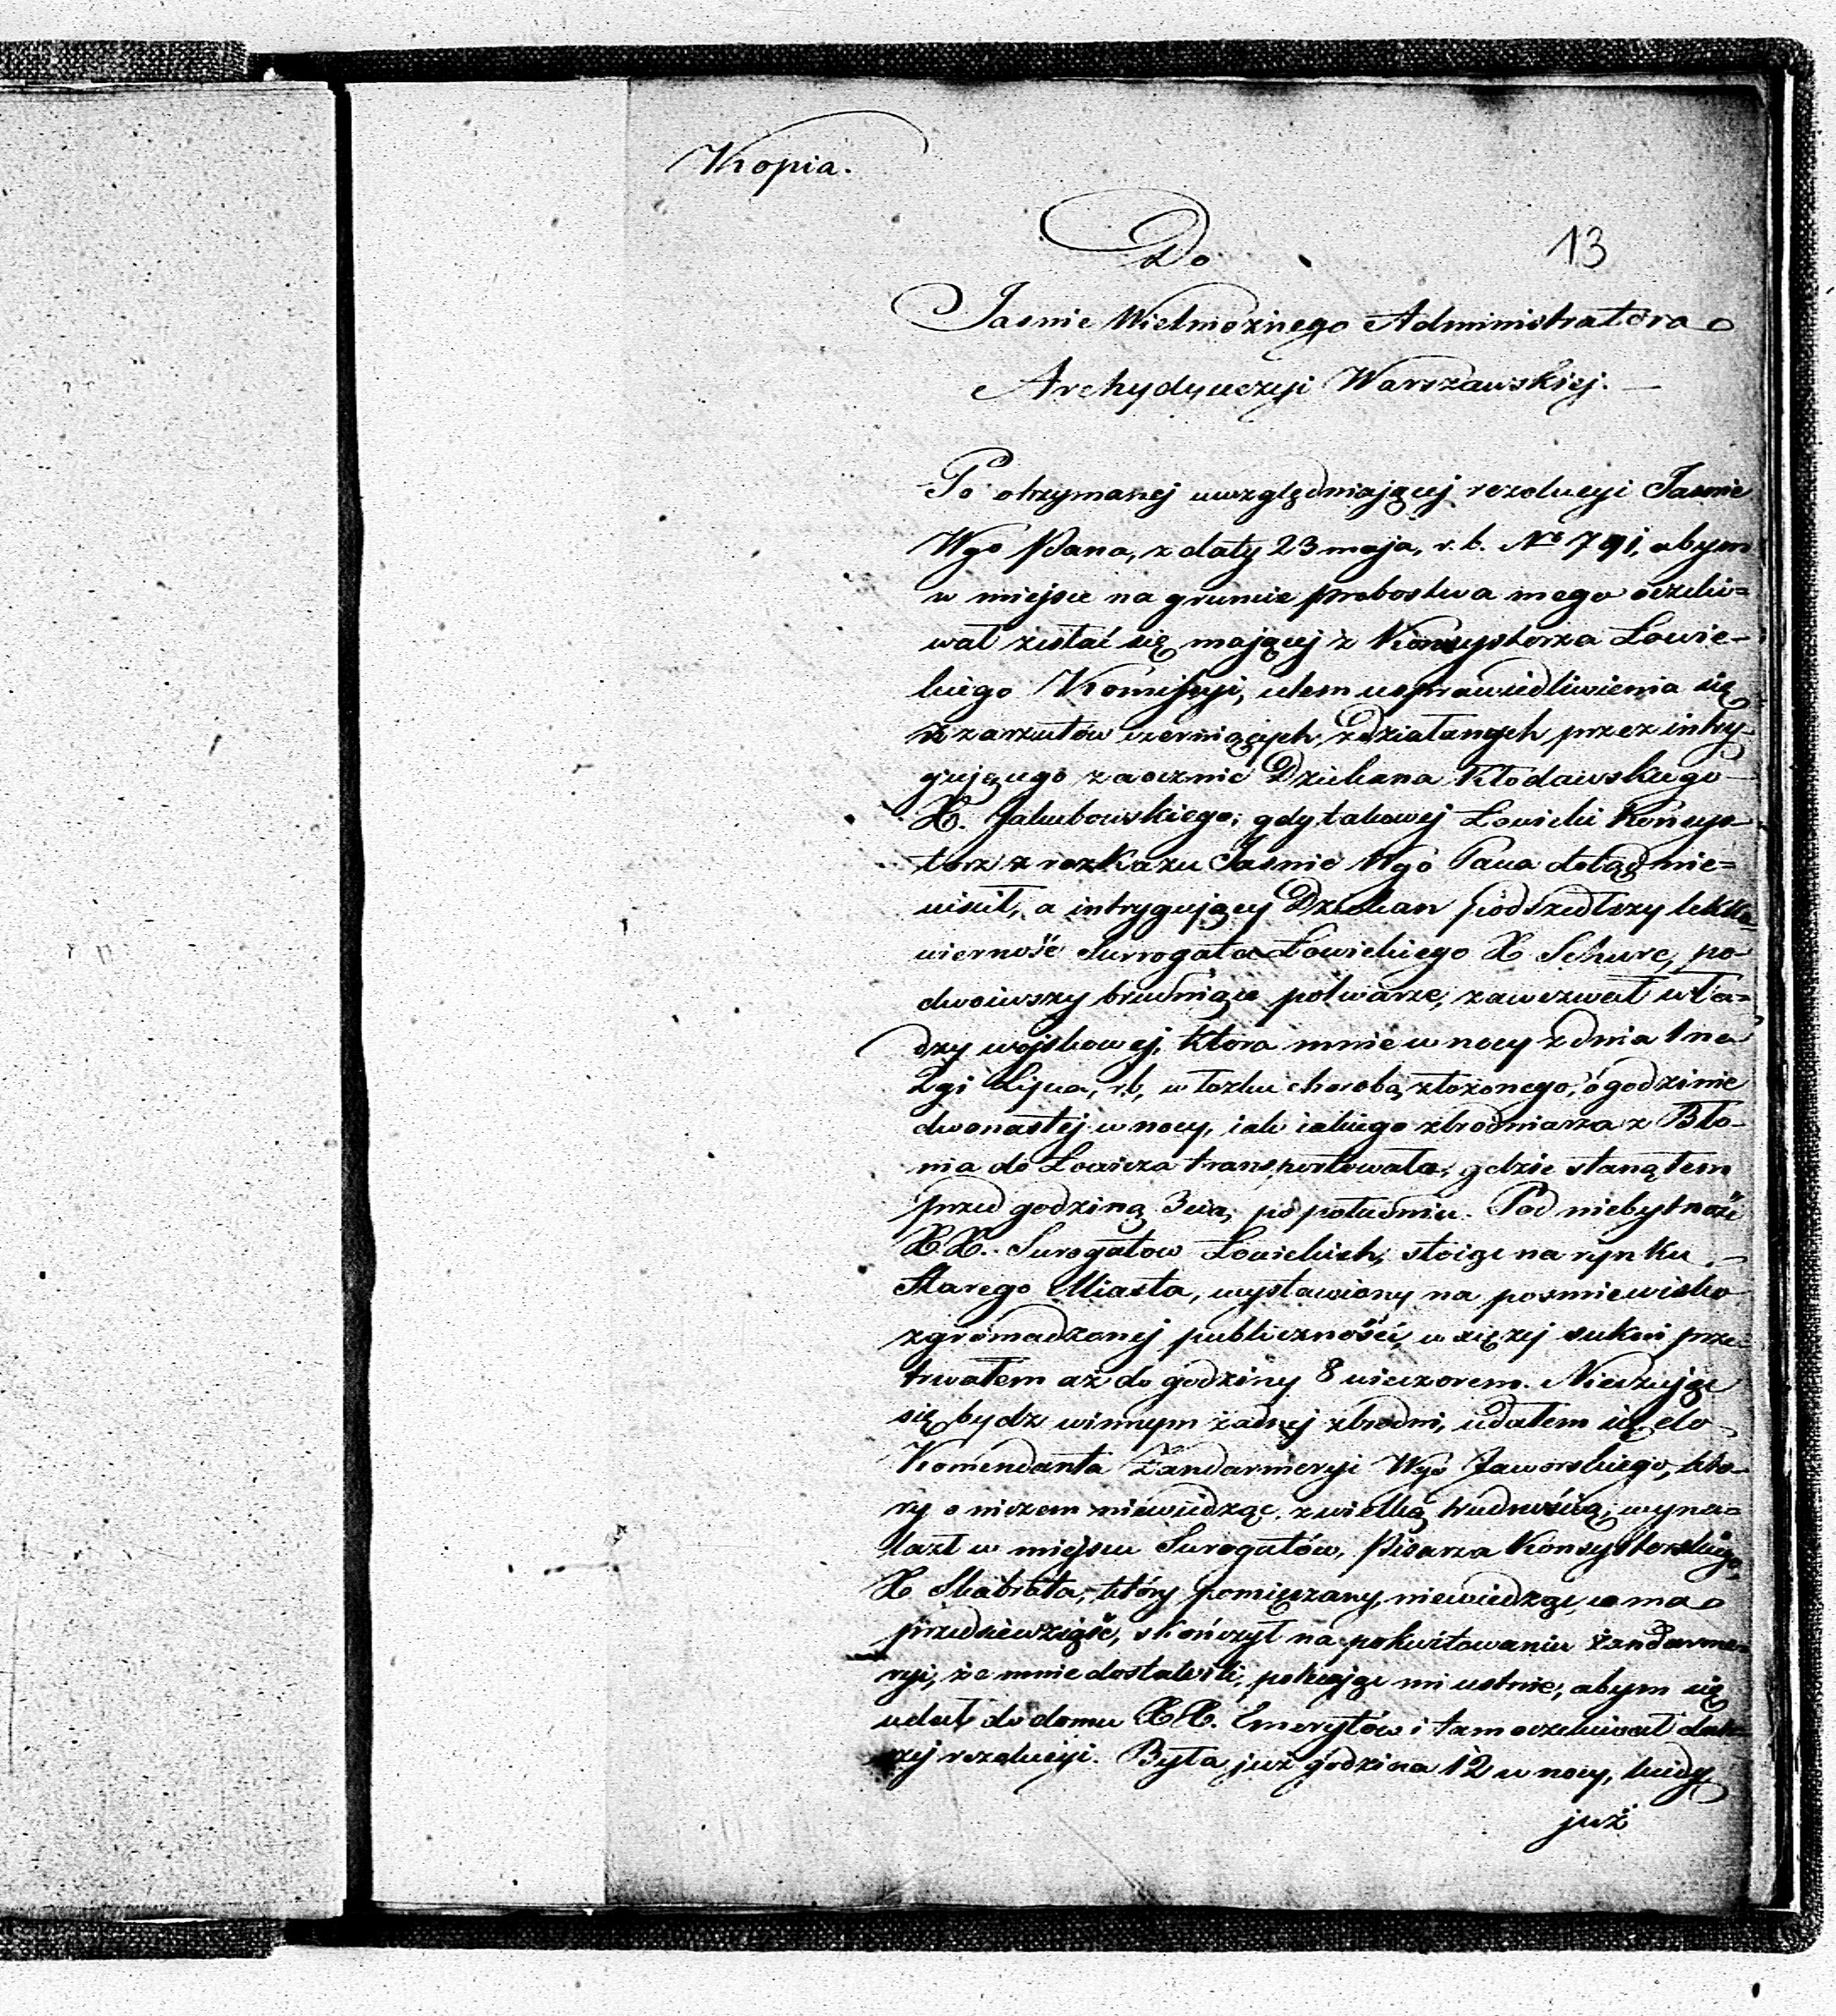 Kopia.
13
Do
Jasnie Wielmożnego Administratora
Archydyecezyi Warszawskiej. —
Po otrzymanej uwzględniającej rezolucyi Jasnie
Wgo Pana, z daty 23 maja, r. b. No 791, abym
w miejscu na gruncie probostwa mego oczeki=
wał zesłać się mającej z Konsystorza Łowic-
kiego Komissyi, celem usprawiedliwienia się
z zarzutów czerniących zdziałanych przez intry-
gującego zaocznie Dziekana Kłodawskiego
X. Jakubowskiego; gdy takowej Łowicki Konsys-
torz z rozkazu Jasnie Wgo Pana dotąd nie=
uiścił, a intrygujący Dziekan podszedłszy lekko
wierność Surrogata Łowickiego X Schurc, po
dwoiwszy brudniące potwarze, zawezwał wła=
dzy wojskowej, która mnie w nocy z dnia 1 na
2gi Lipca, r.b, w łożku chorobą złożonego, o godzinie
dwonastej w nocy, iak iakiego zbrodniarza z Bło-
nia do Łowicza transportowała, gdzie stanąłem
przed godziną 3cia, po południu. Pod niebytność
X.X. Surogatow Łowickich, stoiąc na rynku
Starego Miasta, wystawiony na posmiewisko
zgromadzonej publiczności, w xiężej sukni prze-
trwałem aż do godziny 8 wieczorem. Nieczując
się bydz winnym żadnej zbrodni, udałem się do
Komendanta Żandarmeryi Wgo Jaworskiego, któ-
ry o niczem niewiedząc, z wielką trudnością, wyna=
lazł w miejscu Surogatów, Pisarza Konsystorskiego
X Skabrata, który pomięszany, niewiedząc, co ma
przedsiewziąść, skończył na pokwitowaniu żandarme-
ryi, że mnie dostawili, polecając mi ustnie, abym się
udał do domu XX. Emerytów i tam oczekiwał dal-
szej rezolucyi. Była już godzina 12 w nocy, kiedy
już